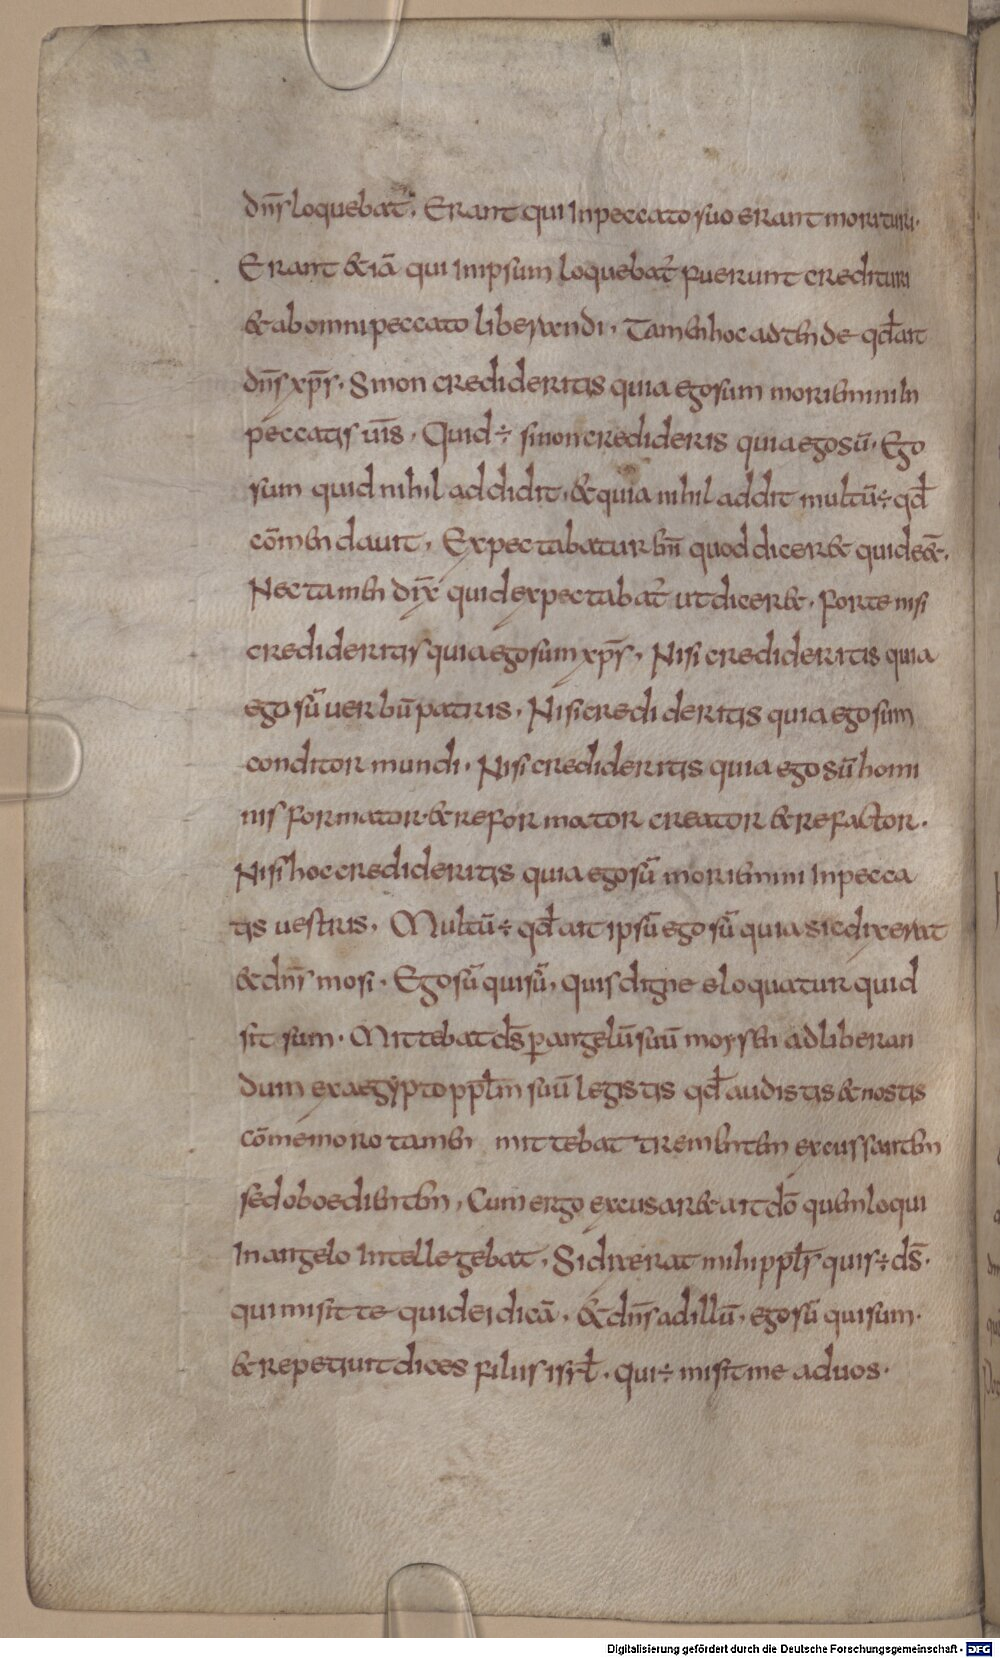 dn̄s loquebat̄. Erant qui inpeccato suo erant morituri.
Erant &iā qui inipsum loquebat̄ fuerunt credituri
& ab omni peccato liberandi. Tamen hoc adtende qđ ait
dn̄s xp̄s. Si non credideritis quia ego sum moriemini in
peccatis uīs. Quid ÷ si non credideris quia ego sū. Ego
sum quid nihil addidit. & quia nihil addit multū ÷ qđ
cōmendauit. Expectabatur eni̅ quod dicer& quid e&̄.
Nec tamen dix̄ quid expectabat̄ ut dicer&. forte nisi
credideritis quia ego sum xp̄s. Nisi credideritis quia
ego sū uerbū patris. Nisi credideritis quia ego sum
conditor mundi. Nisi credideritis quia ego sū homi
nis formator. & reformator creator & refactor.
Nisi hoc credideritis quia ego sū moriemini inpecca
tis uestris. Multū ÷ qđ ait ipsū ego sū quia sic dixerat
& dn̄s mosi. Ego sū qui sū. quis digne eloquatur quid
sit sum. Mittebat d̄s ꝑ angelū suū moysen ad liberan
dum exaegypto pplm̄ suū legistis qđ audistis & nostis
cōmemoro tamen mittebat trementen excussanten
sed oboedienten. Cum ergo excusar& ait dō quen loqui
in angelo intellegebat. Si dixerat mihi ppls̄ quis ÷ d̄s.
qui misit te quid ei dicā. & dn̄s ad illū. ego sū qui sum.
& repetiuit dices filiis isrl̄. qui ÷ misit me ad uos.
Digitalisierung gefördert durch die Deutsche Forschungsgemeinschaft - DFG